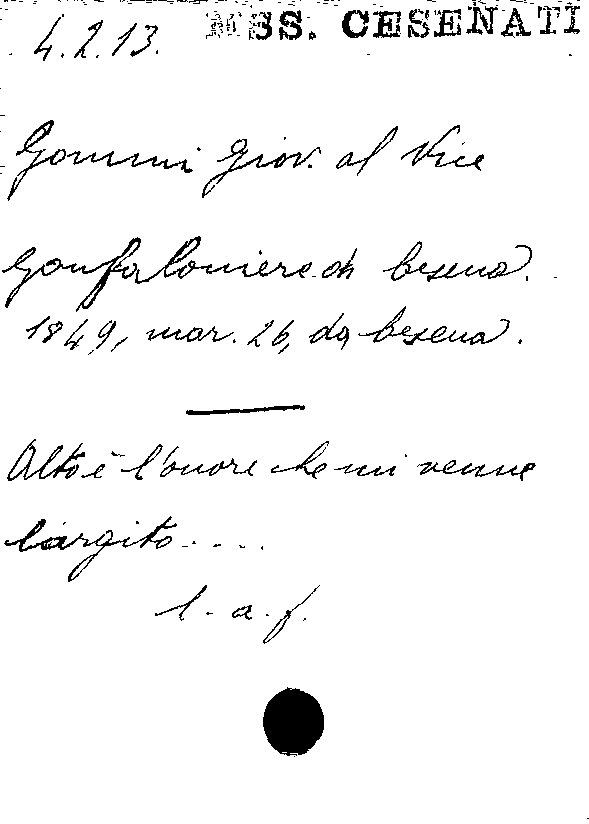 MSS. CESENATI
4.2.13.
Gommi Giov. al Vice
Gonfaloniere di Cesena.
1849, mar. 26, da Cesena.
Alto è l'onore che mi venne
largito....
l. a. f.